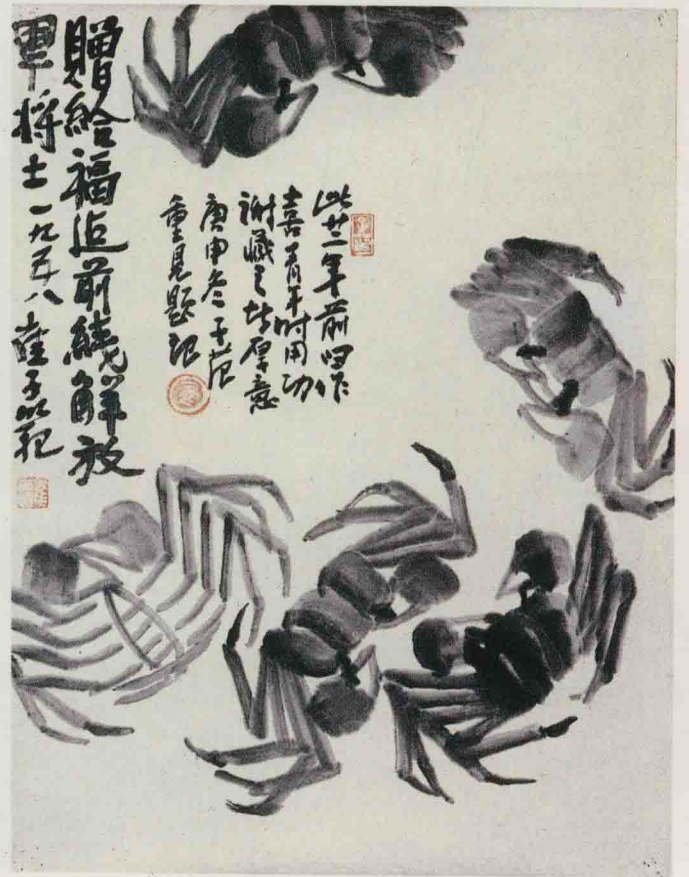 此廿一年前旧作
喜青年时用功
謝藏之厚意
庚申冬子范
重見题记
贈給福建前綫解放
軍将士一九五八崔子範